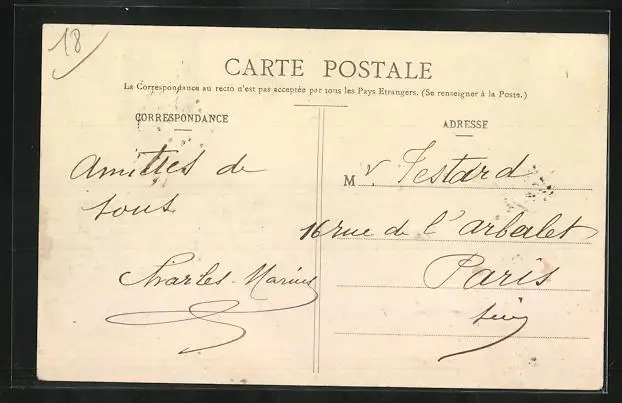 18
CARTE POSTALE
La Correspondance au recto n'est pas acceptée par tous les Pays Etrangers. (Se renseigner à la Poste.)
CORRESPONDANCE
Amitiés de
tous
Charles Marius
ADRESSE
M r Testard
16 rue de l'arbalet
Paris